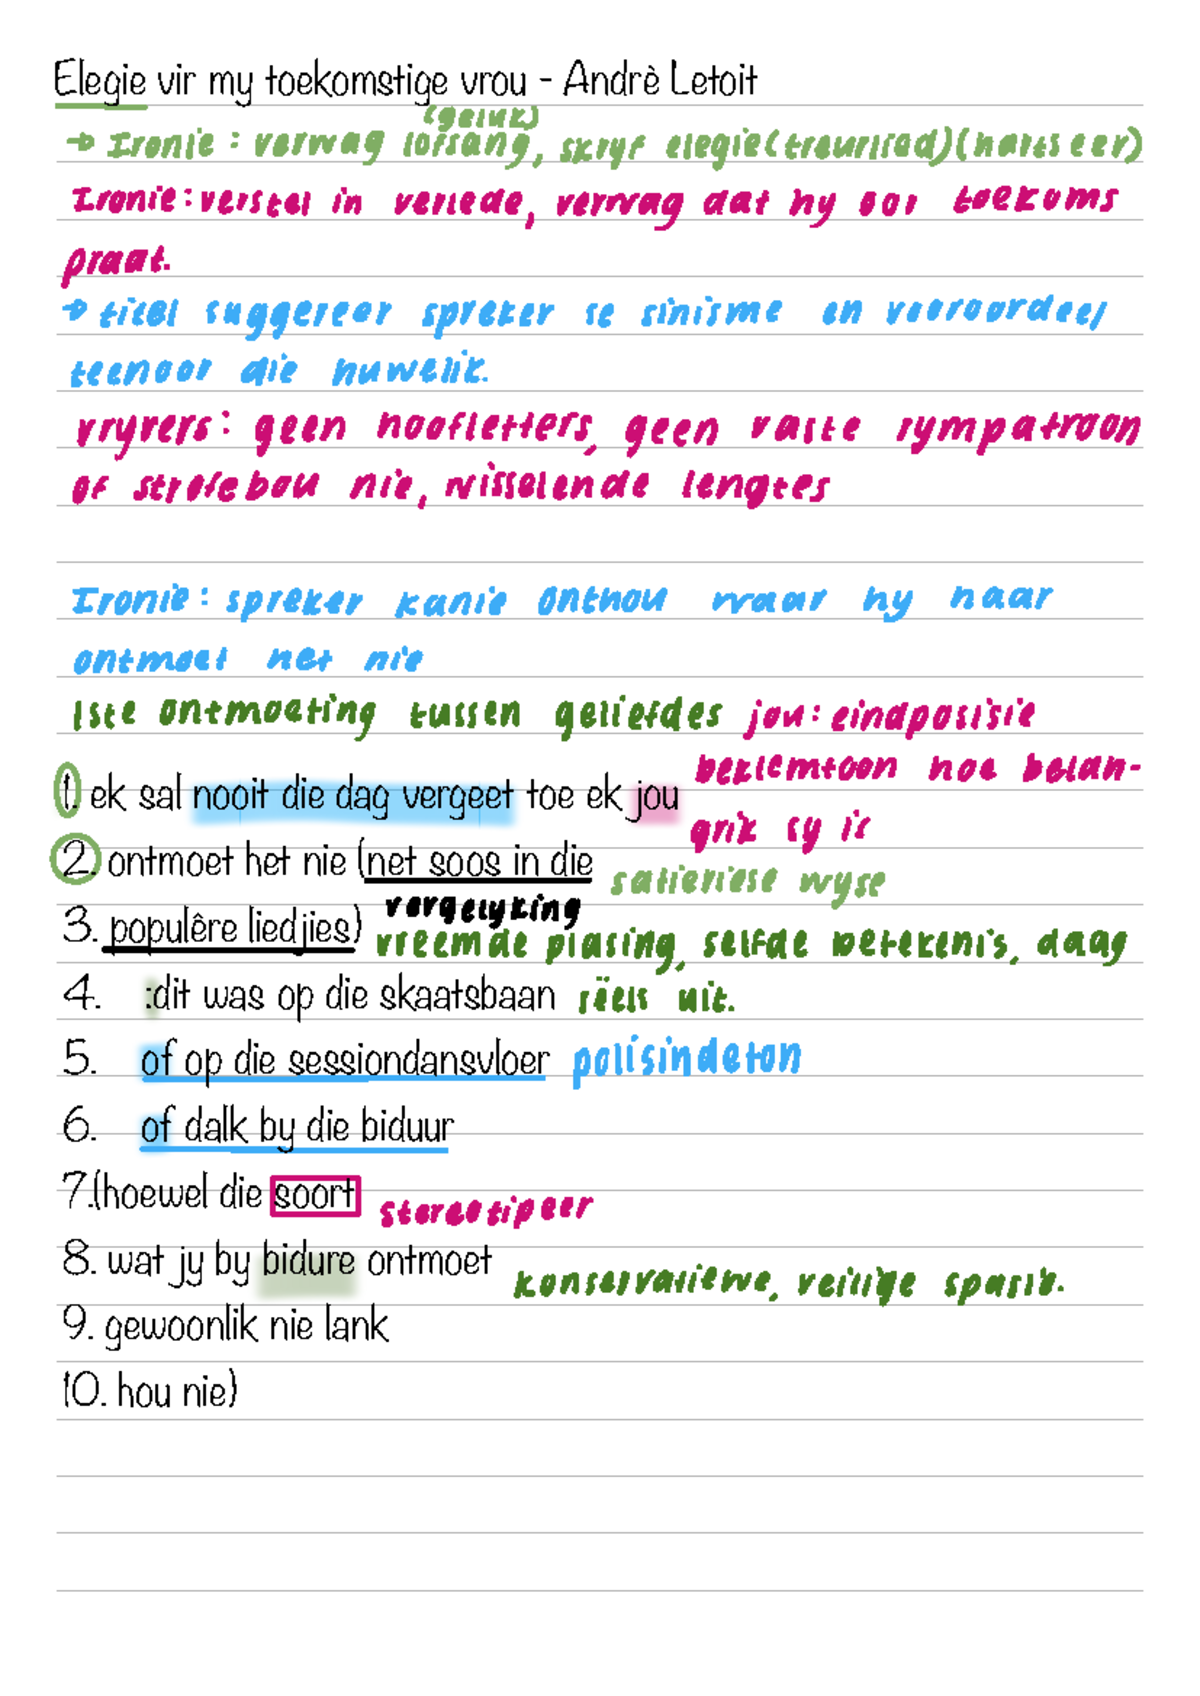 Elegie vir my toekomstige vrou - Andrè Letoit
(geluk)
→ Ironie : verwag lofsang, skryf elegie(treurlied)(hartseer)
Ironie: verstel in verlede, verwag dat hy oor toekoms
praat.
→ titel suggereer spreker se sinisme en vooroordeel
teenoor die huwelik.
vryvers: geen hoofletters, geen vaste rympatroon
of strofebou nie, wisselende lengtes
Ironie: spreker kanie onthou waar hy haar
ontmoet het nie
1ste ontmoeting tussen geliefdes jou: eindposisie
beklemtoon hoe belan-
1. ek sal nooit die dag vergeet toe ek jou
grik sy is
2. ontmoet het nie (net soos in die satieriese wyse
vergelyking
3. populêre liedjies) vreemde plasing, selfde betekenis, daag
4. :dit was op die skaatsbaan reëls uit.
5. of op die sessiondansvloer polisindeton
6. of dalk by die biduur
7.(hoewel die soort stereotipeer
8. wat jy by bidure ontmoet konservatiewe, veilige spasie.
9. gewoonlik nie lank
10. hou nie)